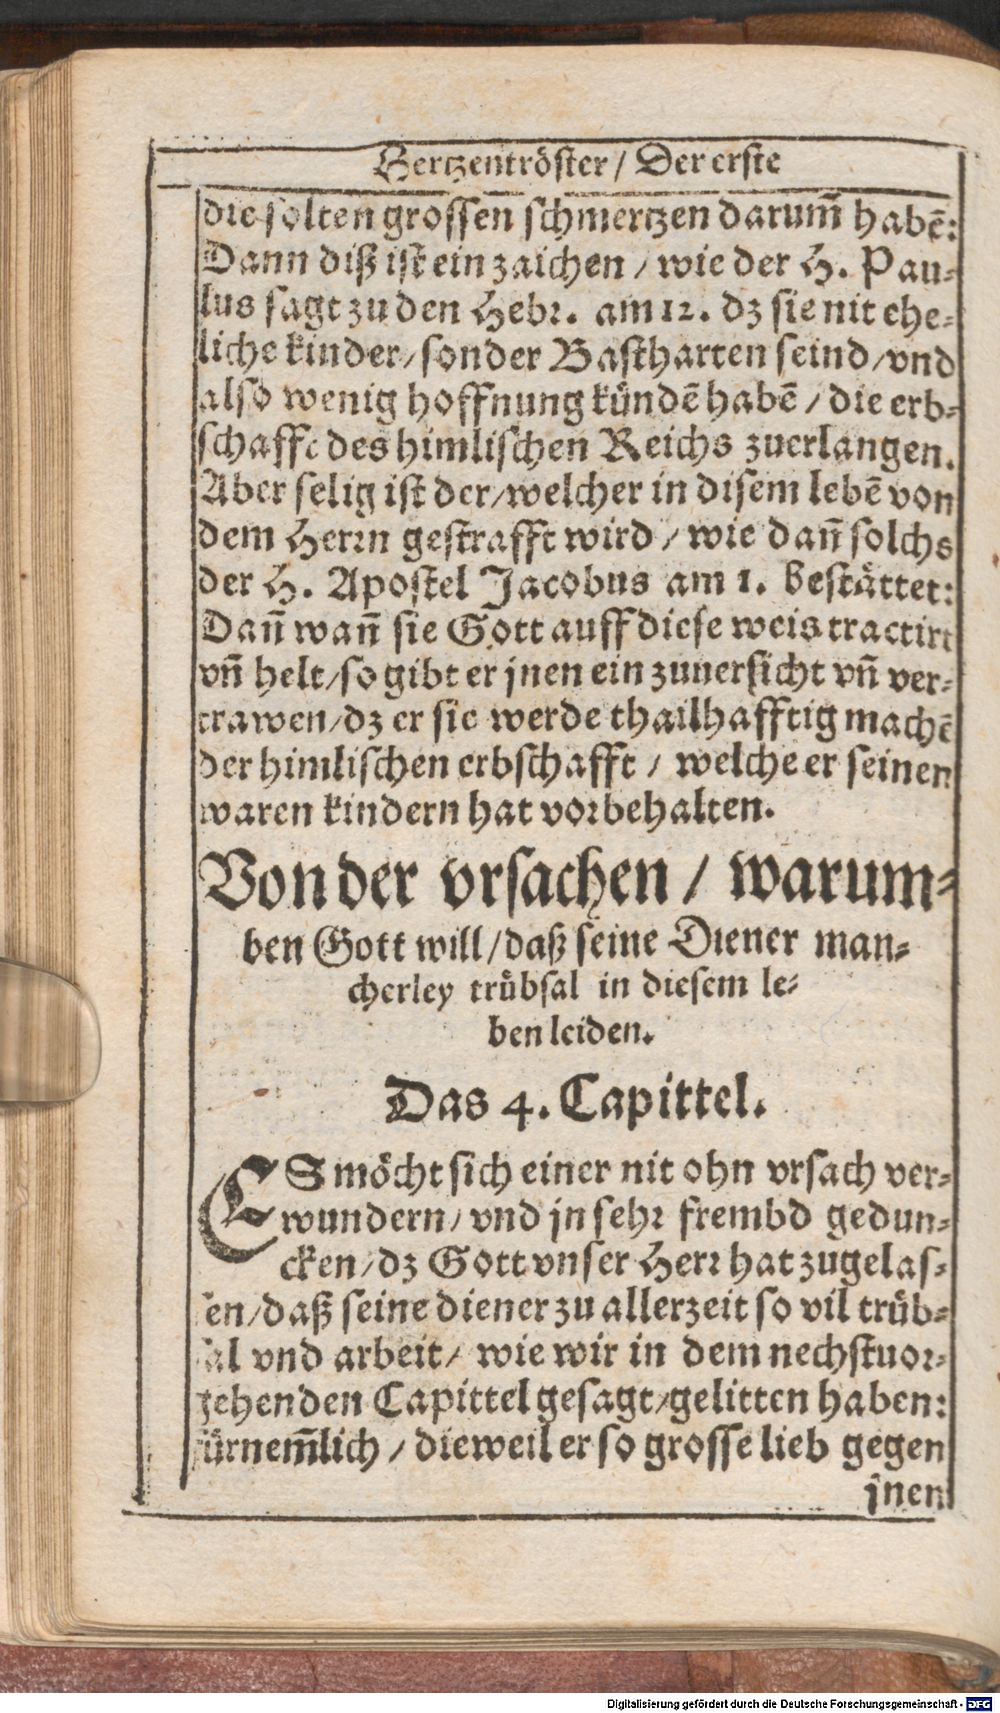 Hertzentröster / Der erste
die solten grossen schmertzen darum̃ habẽ:
Dann diß ist ein zaichen / wie der H. Pau-
lus sagt zu den Hebr. am 12. dz sie nit ehe-
liche kinder / sonder Bastharten seind / vnd
also wenig hoffnung kündẽ habẽ / die erb-
schafft des himlischen Reichs zuerlangen.
Aber selig ist der / welcher in disem lebẽ von
dem Herrn gestrafft wird / wie dañ solchs
der H. Apostel Jacobus am 1. bestättet:
Dañ wañ sie Gott auff diese weis tractirt
vñ helt / so gibt er jnen ein zuuersicht vñ ver-
trawen / dz er sie werde thailhafftig machẽ
der himlischen erbschafft / welche er seinen
waren kindern hat vorbehalten.
Von der vrsachen / warum-
ben Gott will / daß seine Diener man-
cherley trübsal in diesem le-
ben leiden.
Das 4. Capittel.
ES möcht sich einer nit ohn vrsach ver-
wundern / vnd jn sehr frembd gedun-
cken / dz Gott vnser Herr hat zugelas-
sen / daß seine diener zu allerzeit so vil trüb-
sal vnd arbeit / wie wir in dem nechstuor-
gehenden Capittel gesagt / gelitten haben:
fürnem̃lich / dieweil er so grosse lieb gegen
jnen
Digitalisierung gefördert durch die Deutsche Forschungsgemeinschaft - DFG